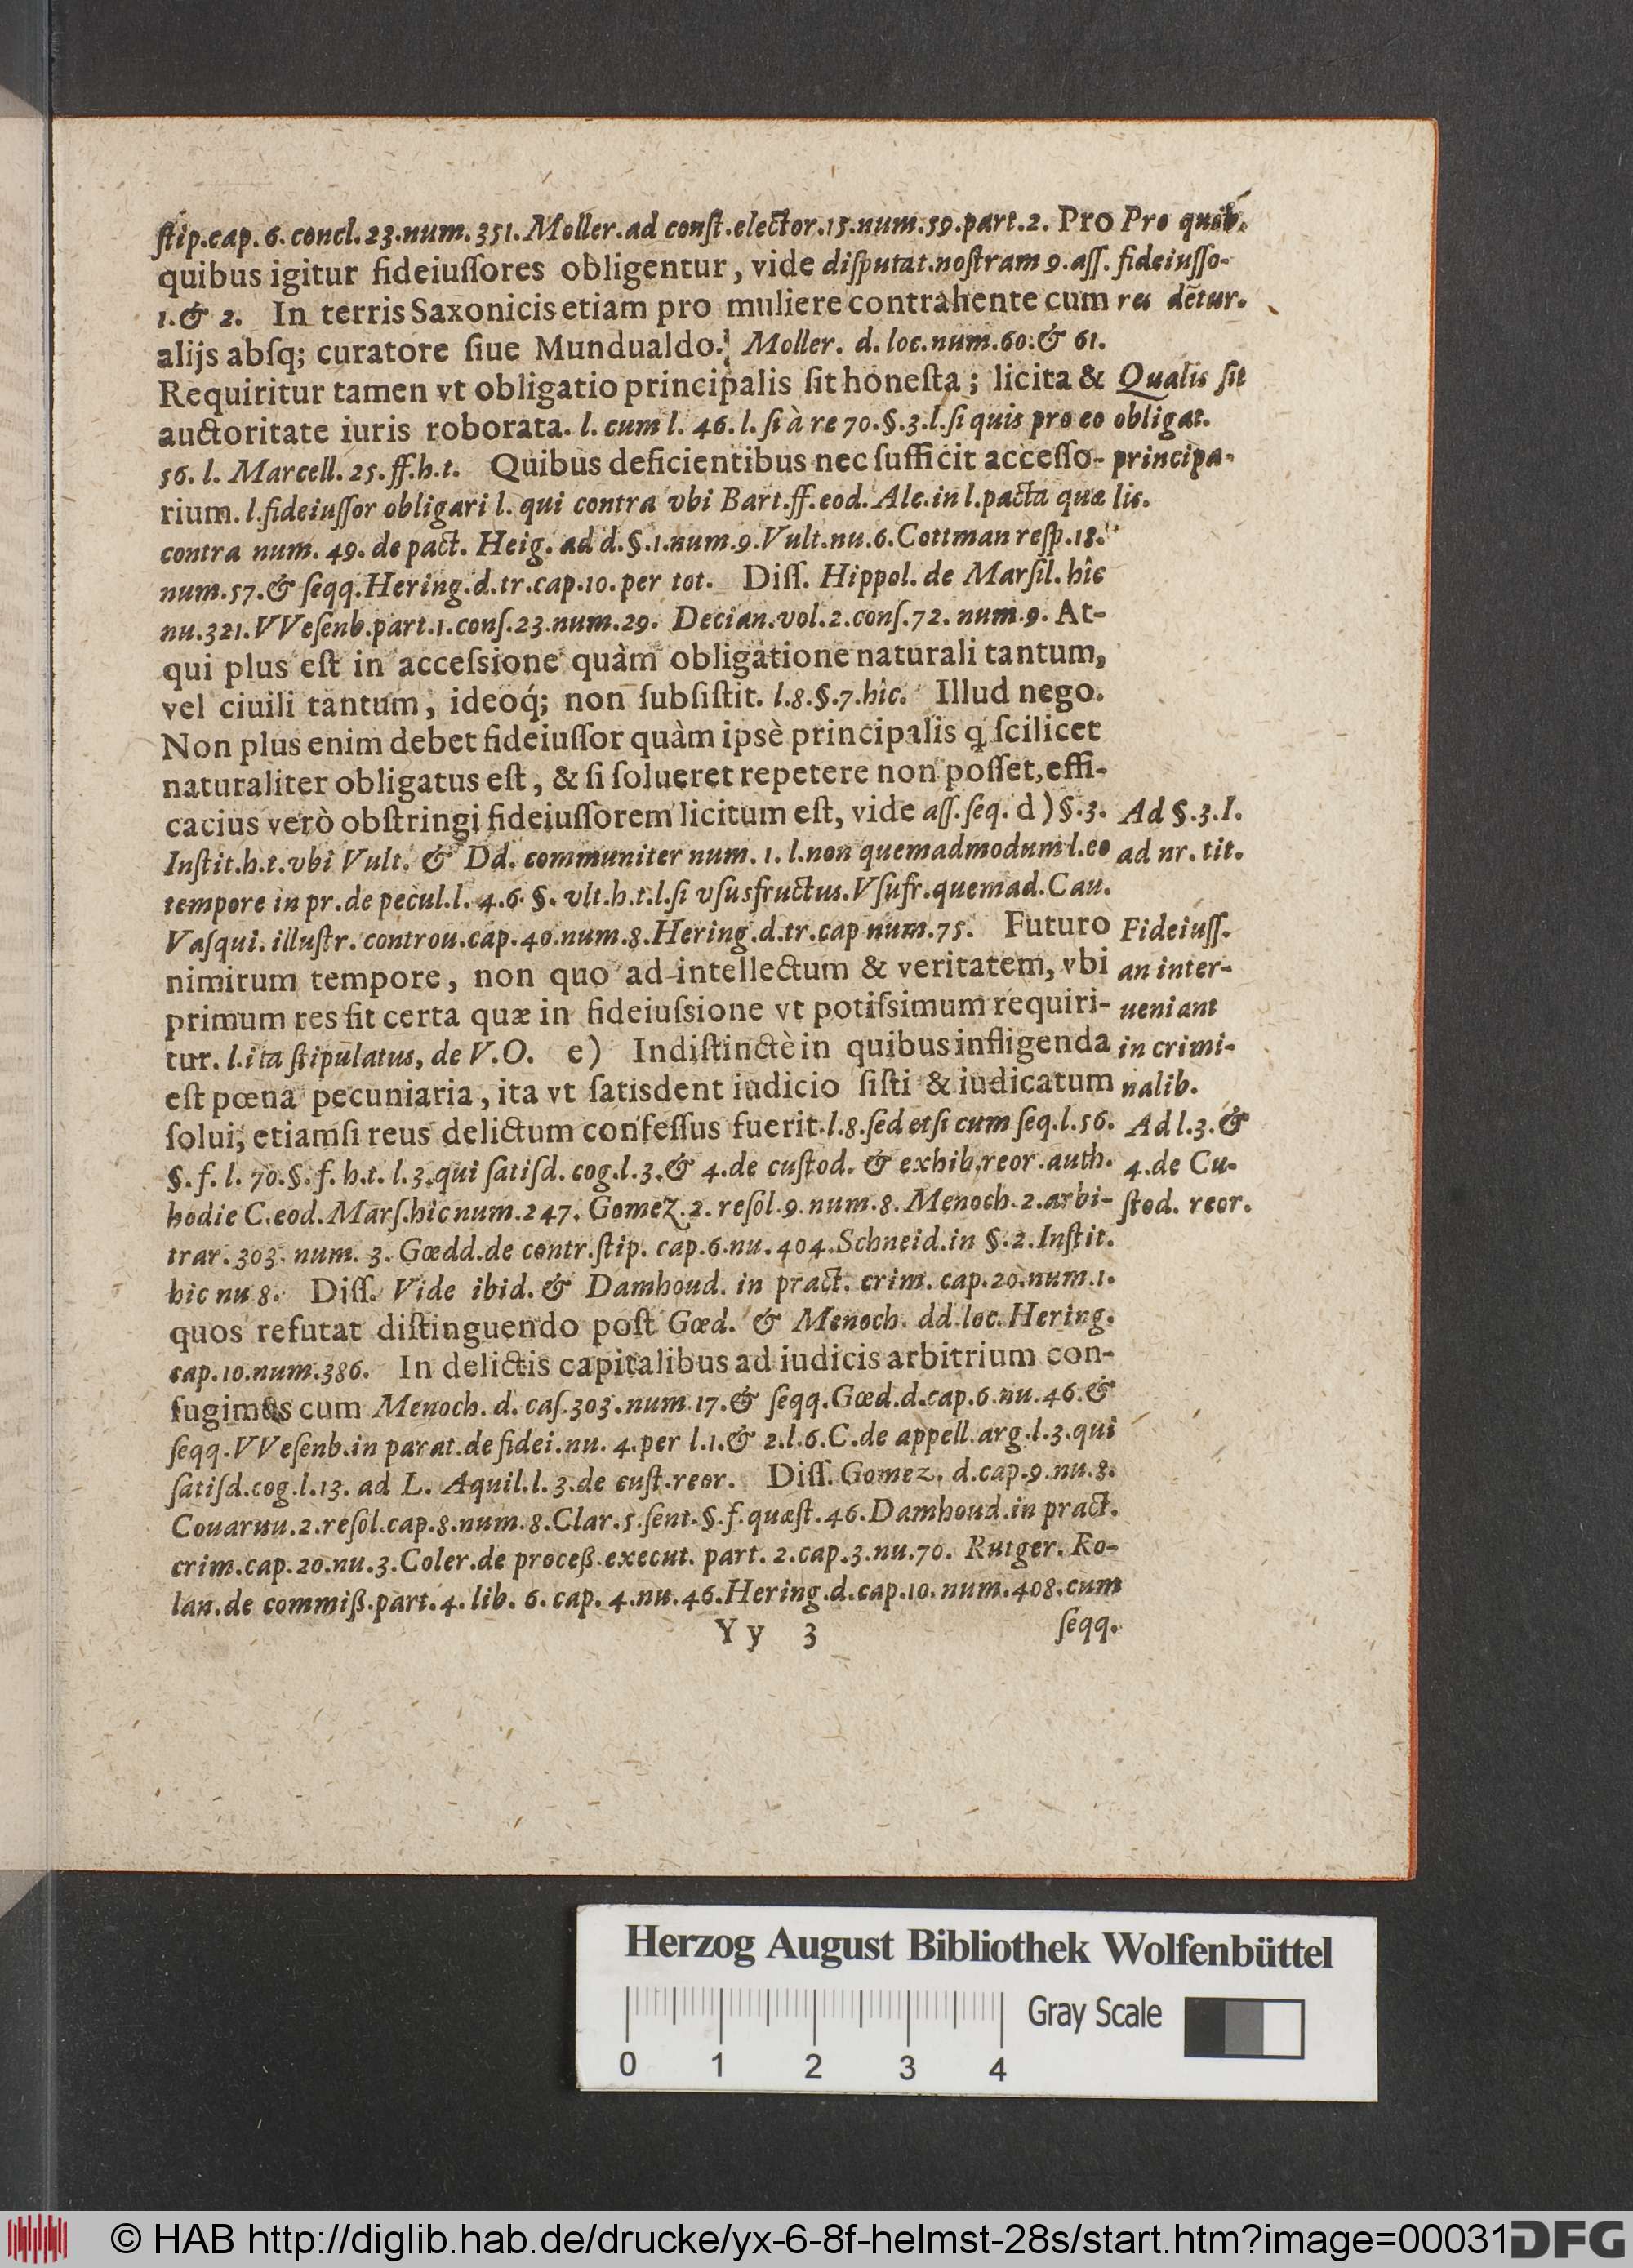 ſtip.cap.6.concl.23.num.351.Moller.ad conſt.elector.15.num.59.part.2. Pro
quibus igitur fideiuſſores obligentur, vide diſputat.noſtram 9.aſſ.
1.& 2. In terris Saxonicis etiam pro muliere contrahente cum
alijs abſq; curatore ſiue Mundualdo. Moller. d. loc.num.60.& 61.
Requiritur tamen vt obligatio principalis ſit honeſta; licita &
auctoritate iuris roborata. l. cum l. 46. l. ſi à re 70.§.3.l.ſi quis pro eo
56. l. Marcell. 25.ff.h.t. Quibus deficientibus nec ſufficit acceſſo-
rium. l.fideiuſſor obligari l. qui contra vbi Bart.ff.eod.Alc.in l.pacta quæ
contra num. 49. de pact. Heig. ad d.§.1.num.9.Vult.nu.6.Cottman reſp.18.
num.57.& ſeqq.Hering.d.tr.cap.10.per tot. Diſſ. Hippol. de Marſil. hîc
nu.321.VVeſenb.part.1.conſ.23.num.29. Decian.vol.2.conſ.72. num.9. At-
qui plus eſt in acceſsione quàm obligatione naturali tantum,
vel ciuili tantum, ideoq́; non ſubſiſtit. l.8.§.7.hîc. Illud nego.
Non plus enim debet fideiuſſor quàm ipsè principalis q ſcilicet
naturaliter obligatus eſt, & ſi ſolueret repetere non poſſet, effi-
cacius verò obſtringi fideiuſſorem licitum eſt, vide aſſ.ſeq. d) §.3.
Inſtit.h.t.vbi Vult. & Dd. communiter num. 1. l.non quemadmodum l.eo
tempore in pr.de pecul.l. 4.6 §. vlt.h.t.l.ſi vſusfructus.Vſufr.quemad.Cau.
Vaſqui. illuſtr. controu.cap.40.num.8.Hering.d.tr.cap num.75. Futuro
nimirum tempore, non quo ad intellectum & veritatem, vbi
primum res ſit certa quæ in fideiuſsione vt potiſsimum requiri-
tur. l.ita ſtipulatus, de V.O. e) Indiſtinctè in quibus infligenda
eſt pœna pecuniaria, ita vt ſatisdent iudicio ſiſti & iudicatum
ſolui, etiamſi reus delictum confeſſus fuerit.l.8.ſed etſi cum ſeq.l.56.
§.f. l. 70.§.f. h.t. l.3.qui ſatiſd. cog.l.3.& 4.de cuſtod. & exhib.reor.auth.
hodie C.eod.Marſ.hîc num.247. Gomez.2.reſol.9.num.8. Menoch.2.arbi-
trar.303. num. 3. Gœdd.de contr.ſtip. cap.6.nu.404.Schneid.in §.2.Inſtit.
hic nu 8. Diſſ. Vide ibid.& Damhoud. in pract. crim. cap.20.num.1.
quos refutat diſtinguendo poſt Gœd. & Menoch. dd.loc.Hering.
cap.10.num.386. In delictis capitalibus ad iudicis arbitrium con-
fugimus cum Menoch. d. caſ.303.num.17.& ſeqq.Gœd.d.cap.6.nu.46.&
ſeqq.VVeſenb.in parat.de fidei.nu. 4.per l.1.& 2.l.6.C.de appell.arg.l.3.qui
ſatiſd.cog.l.13. ad L. Aquil.l.3.de cuſt.reor. Diſſ. Gomez. d.cap.9.nu.8.
Couaruu.2.reſol.cap.8.num.8.Clar.5.ſent.§.f.quæſt.46.Damhoud.in pract.
crim.cap.20.nu.3.Coler.de proceß.execut. part. 2.cap.3.nu.70. Rutger. Ro-
lan.de commiß.part.4. lib. 6. cap. 4.nu.46.Hering.d.cap.10.num.408.cum
Yy 3 ſeqq.
Pro quib.
fideiuſſo-
res dētur.
Qualis ſit
obligat.
principa-
lis.
Ad §.3.I.
ad nr. tit.
Fideiuſſ.
an inter-
ueniant
in crimi-
nalib.
Ad l.3.&
4.de Cu-
ſtod. reor.
Herzog August Bibliothek Wolfenbüttel
Gray Scale
0 1 2 3 4
© HAB http://diglib.hab.de/drucke/yx-6-8f-helmst-28s/start.htm?image=00031
DFG